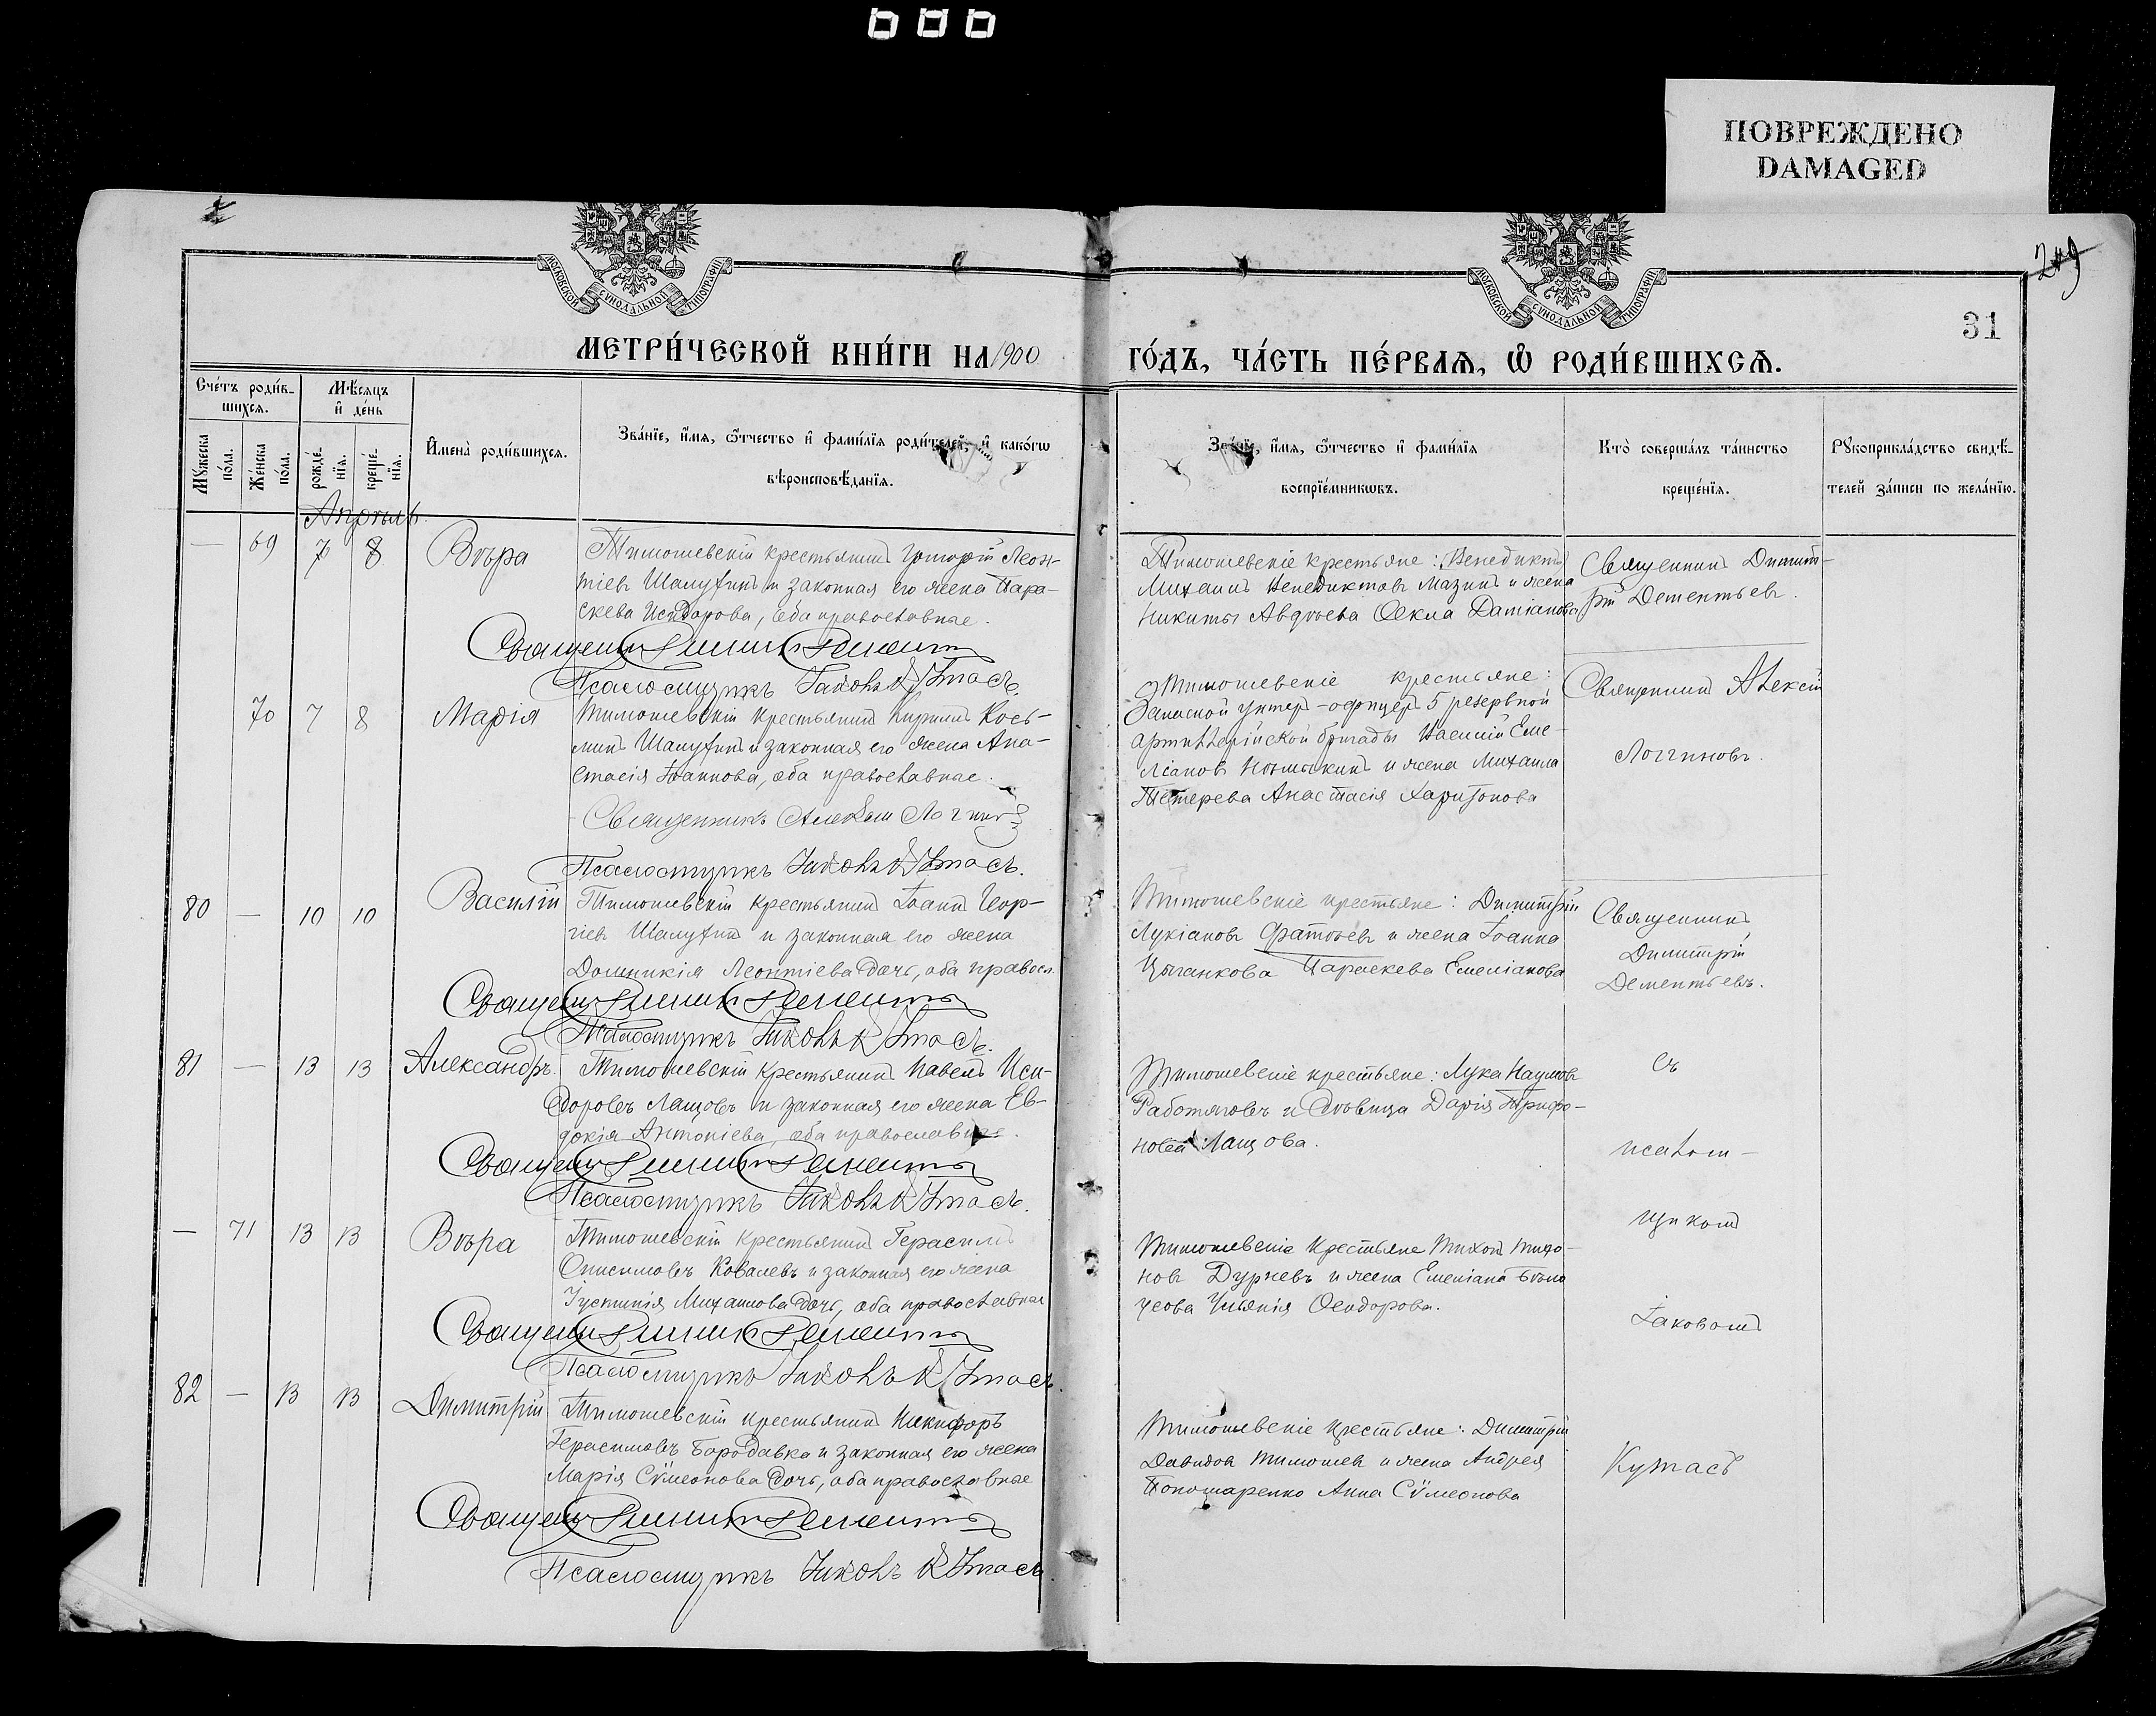 ПОВРЕЖДЕНО
DAMAGED
249
31
МОСКОВСКОЙ СѴНОДАЛЬНОЙ ТИПОГРАФІИ
МОСКОВСКОЙ СѴНОДАЛЬНОЙ ТИПОГРАФІИ
МЕТРИ́ЧЕСКОЙ КНИ́ГИ НА 1900
ГО́ДЪ, ЧА́СТЬ ПЕ́РВАѦ, Ѡ҆ РОДИ́ВШИХСѦ.
Сче́тъ роди́в-
шихсѧ.
Мѣ́сѧцъ
и҆ де́нь
Мꙋ́жеска
по́ла.
Же́нска
по́ла.
рожде́-
нїѧ.
креще́-
нїѧ.
И҆мена̀ роди́вшихсѧ.
Зва́нїе, и҆́мѧ, ѻ҆́тчество и҆ фами́лїѧ роди́телей, и҆ како́гѡ
вѣроисповѣ́данїѧ.
Зва́нїе, и҆́мѧ, ѻ҆́тчество и҆ фами́лїѧ
воспрїе́мникѡвъ.
Кто̀ соверша́лъ та́инство
креще́нїѧ.
Рꙋкоприкла́дство свидѣ́-
телей за́писи по жела́нїю.
Апрѣль
— 69 7 8 Вѣра
Тимошевскій крестьянинъ Григорій Леон-
тіевъ Шалухинъ и законная его жена Пара-
скева Исидорова, оба православные.
Священникъ Димитрій Дементьевъ
Псаломщикъ Іаковъ Кутасъ.
Тимошевскіе крестьяне: Венедиктъ
Михаилъ Венедиктовъ Мазинъ и жена
Никиты Авдѣева Ѳекла Даміанова
Священникъ Димит-
рій Дементьевъ.
70 7 8 Марія
Тимошевскій крестьянинъ Кириллъ Кось-
минъ Шалухинъ и законная его жена Ана-
стасія Іоаннова, оба православные.
Священникъ Алексій Логгиновъ
Псаломщикъ Іаковъ Кутасъ.
Тимошевскіе крестьяне:
Запасной унтеръ-офицеръ 5 резервной
артиллерійской бригады Василій Еме-
ліановъ и жена Михаила
Тетерева Анастасія Харитонова
Священникъ Алексій
Логгиновъ.
80 — 10 10 Василій
Тимошевскій крестьянинъ Іоаннъ Геор-
гіевъ Шалухинъ и законная его жена
Домникія Леонтіева дочь, оба правосл.
Священникъ Димитрій Дементьевъ
Псаломщикъ Іаковъ Кутасъ.
Тимошевскіе крестьяне: Димитрій
Лукіановъ Фатѣевъ и жена Іоанна
Цыганкова Параскева Емеліанова
Священникъ
Димитрій
Дементьевъ.
81 — 13 13 Александръ.
Тимошевскій крестьянинъ Павелъ Иси-
доровъ Лащовъ и законная его жена Ев-
докія Антоніева, оба православные.
Священникъ Димитрій Дементьевъ
Псаломщикъ Іаковъ Кутасъ.
Тимошевскіе крестьяне: Лука Наумовъ
Работяговъ и дѣвица Дарія Трифо-
нова Лащова.
Съ
псалом-
щикомъ
Іаковомъ
Кутасъ
— 71 13 13 Вѣра
Тимошевскій крестьянинъ Герасимъ
Онисимовъ Ковалевъ и законная его жена
Іустинія Михаилова дочь, оба православные
Священникъ Димитрій Дементьевъ
Псаломщикъ Іаковъ Кутасъ.
Тимошевскіе крестьяне Тихонъ Тихо-
новъ Дурневъ и жена Емеліана Бѣло-
усова Ѳеодорова.
82 — 13 13 Димитрій
Тимошевскій крестьянинъ Никифоръ
Герасимовъ Бородавка и законная его жена
Марія Сѵмеонова дочь, оба православные
Священникъ Димитрій Дементьевъ
Псаломщикъ Іаковъ Кутасъ
Тимошевскіе крестьяне: Димитрій
Давидовъ Тимошевъ и жена Андрея
Пономаренко Анна Сѵмеонова